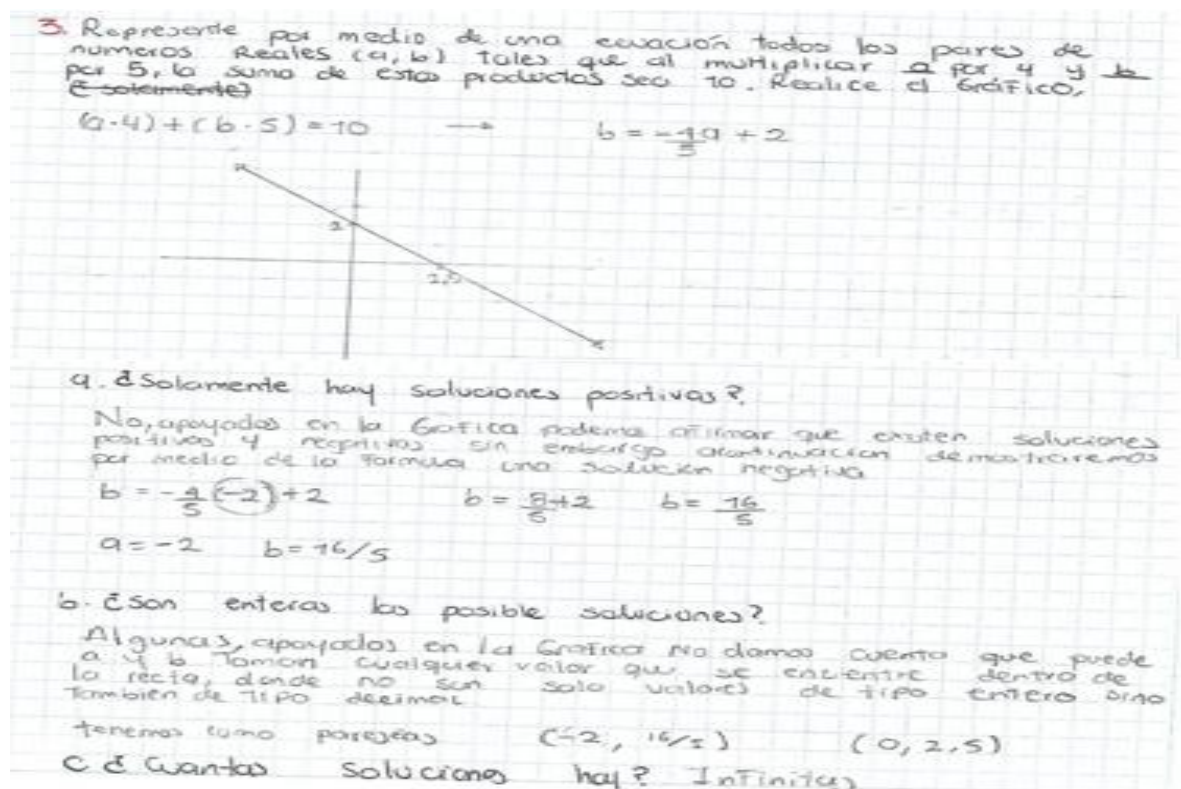 3. Represente por medio de una ecuación todos los pares de
numeros Reales (a, b) tales que al multiplicar a por 4 y b
por 5, la suma de estos productos sea 10. Realice el Gráfico,
(a·4) + (b·5) = 10 → b = -4/5 a + 2
2
2,5
a. ¿Solamente hay soluciones positivas?
No, apoyados en la Grafica podemos afirmar que existen soluciones
positivas y negativas sin embargo acontinuacion demostraremos
por medio de la formula una solución negativa
b = -4/5 (-2) + 2 b = 8/5 + 2 b = 16/5
a = -2 b = 16/5
b. ¿Son enteras las posible soluciones?
Algunas, apoyados en la Grafica No damos cuenta que puede
a y b Toman cualquier valor que se encientre dentro de
la recta, donde no son solo valores de tipo entero sino
También de tipo decimal
tenemos como parejas (-2, 16/5) (0, 2,5)
C ¿Cuantas soluciones hay? Infinitas